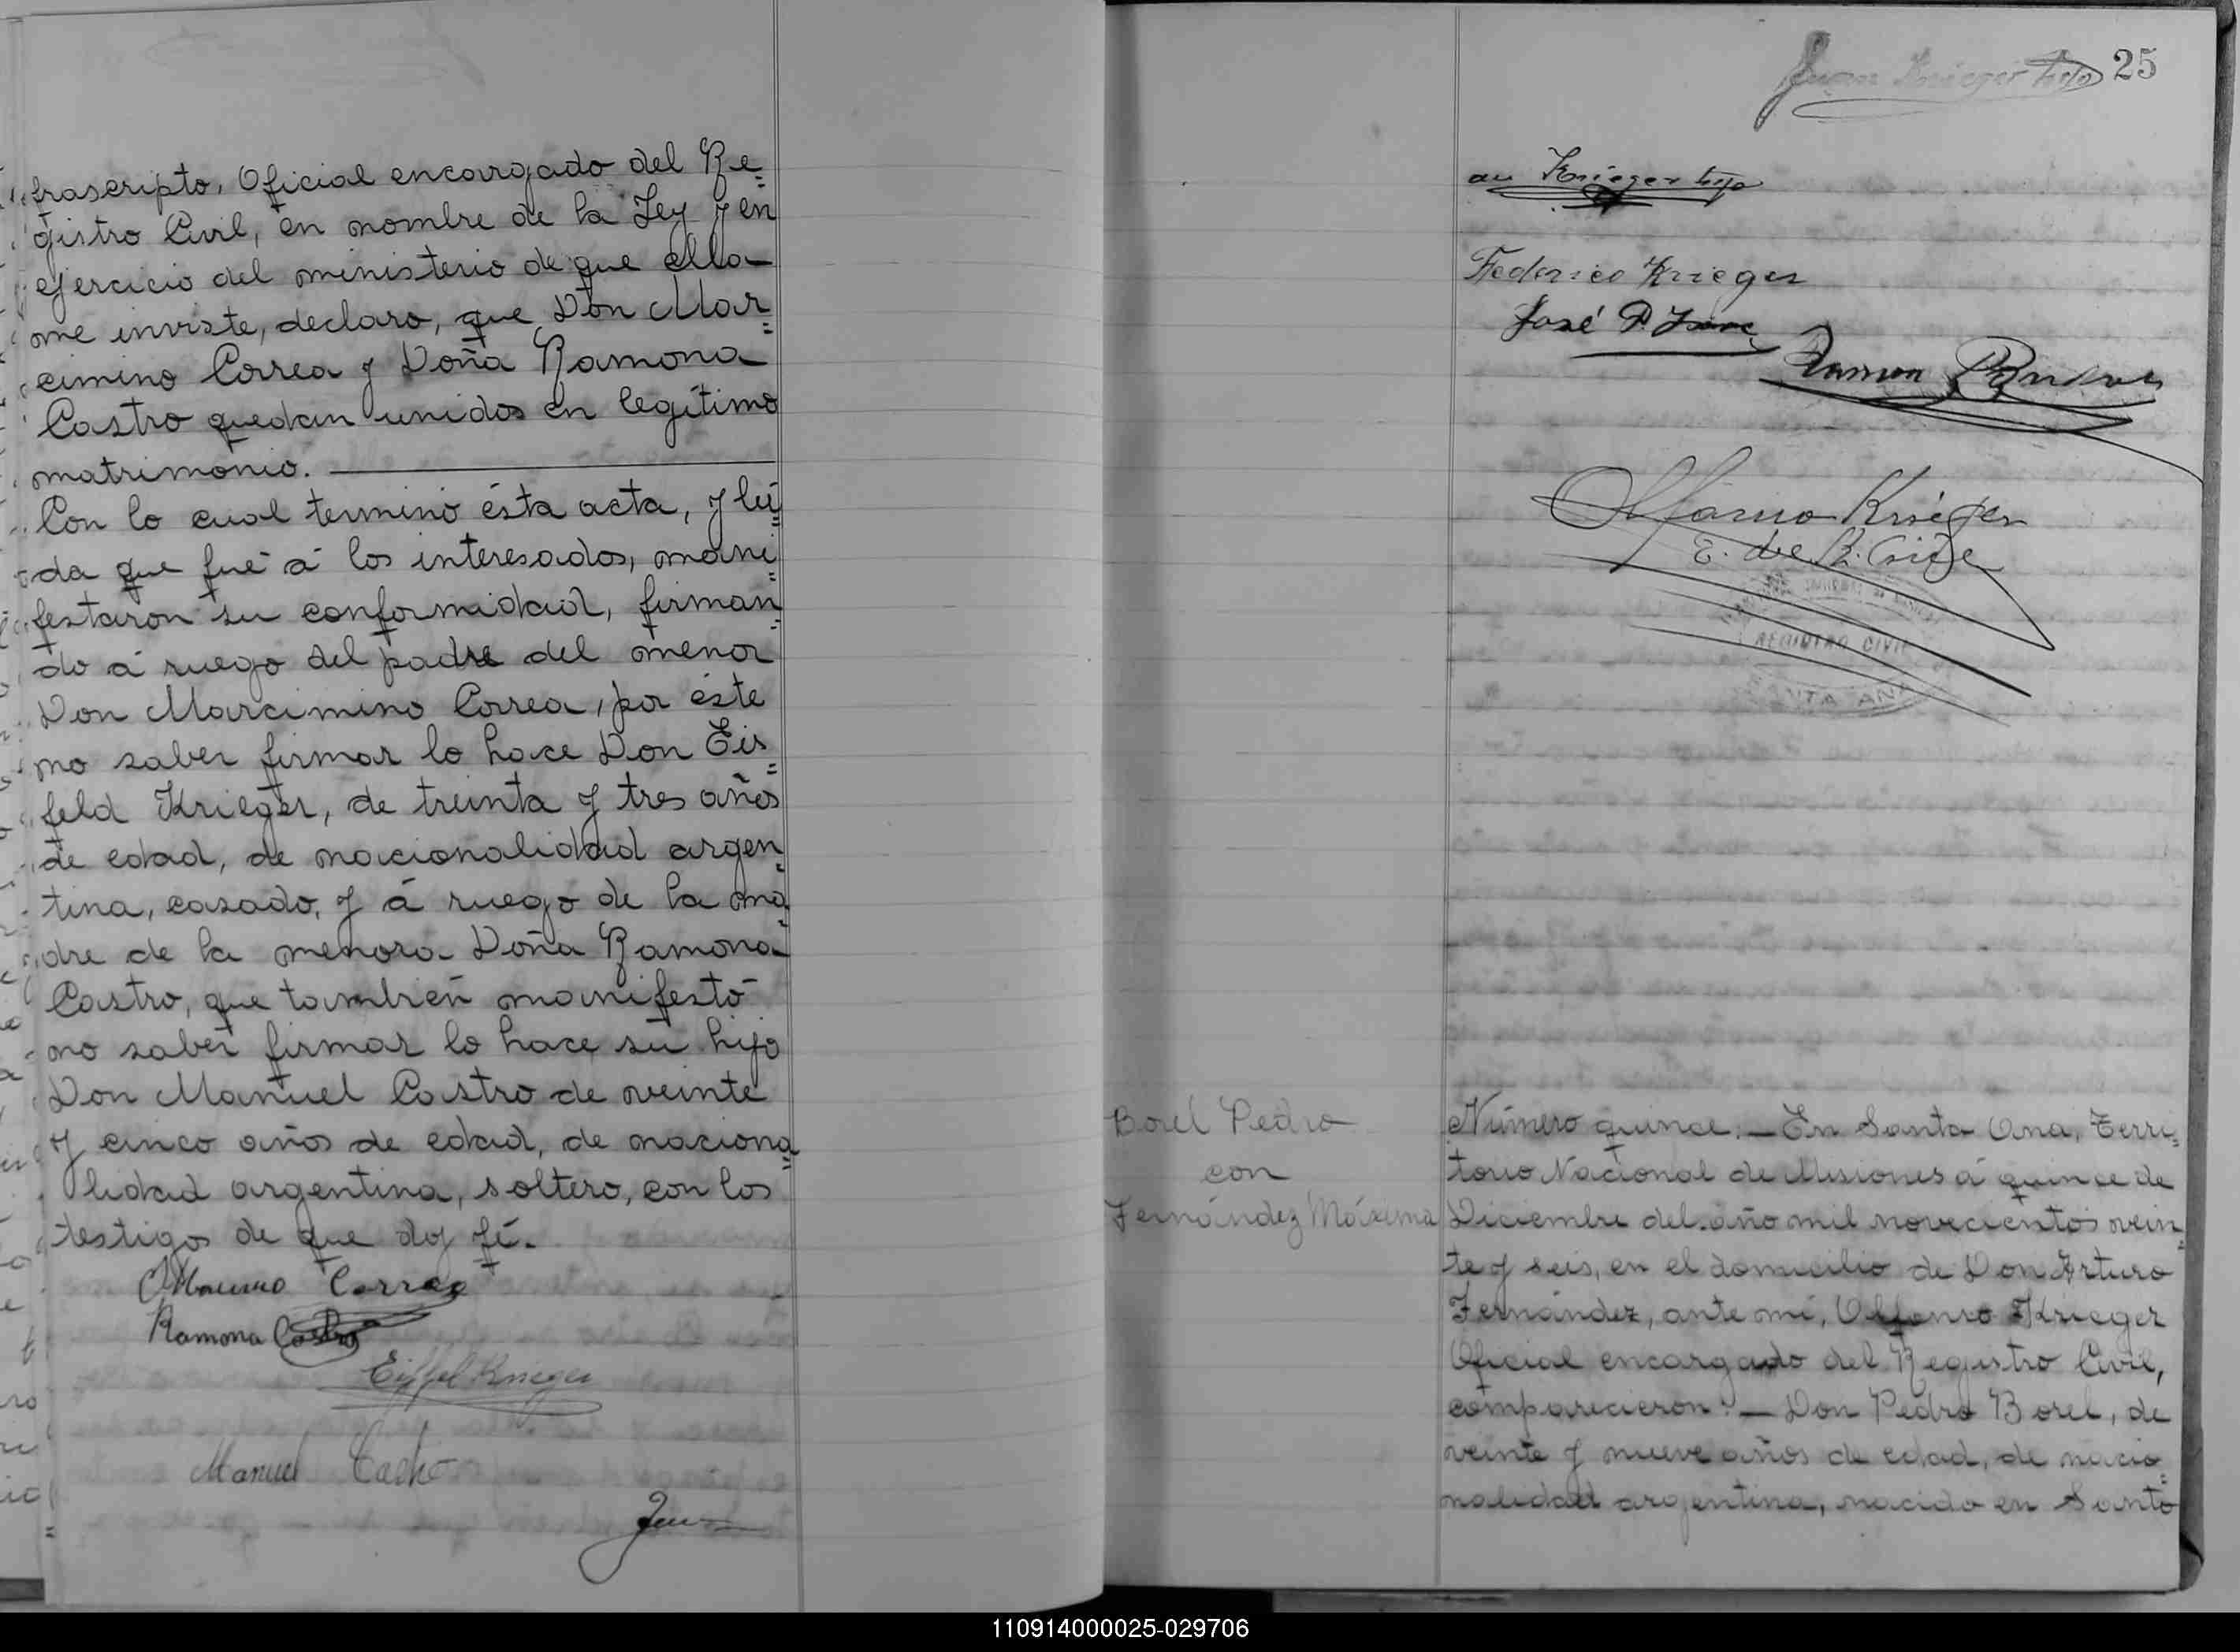 frascripto, Oficial encargado del Re=
gistro Civil, en nombre de la Ley y en
ejercicio del ministerio de que ella
me inviste, declaro, que Don Mar=
cimino Correa y Doña Ramona
Castro quedan unidos en legítimo
matrimonio.
Con lo cual terminó ésta acta, y leí=
da que fué á los interesados, mani=
festaron su conformidad, firman=
do á ruego del padre del menor
Don Marcimino Correa, por éste
no saber firmar lo hace Don Eis=
feld Krieger, de treinta y tres años
de edad, de nacionalidad argen=
tina, casado, y á ruego de la ma=
dre de la menora Doña Ramona
Castro, que también manifestó
no saber firmar lo hace su hijo
Don Manuel Castro de veinte
y cinco años de edad, de naciona=
lidad argentina, soltero, con los
testigos de que doy fé.
Correa
Ramona Castro
Eiffel Krieger
Manuel Castro
Juan
25
Juan Krieger hijo
Krieger hijo
Federico Krieger
José P.
Ramon
Alfonso Krieger
E. del R. Civil
REGISTRO CIVIL
SANTA ANA
Borel Pedro
con
Fernández Máxima
Número quince.—En Santa Ana, Terri=
torio Nacional de Misiones á quince de
Diciembre del año mil novecientos vein=
te y seis, en el domicilio de Don Arturo
Fernández, ante mí, Alfonso Krieger
Oficial encargado del Registro Civil,
comparecieron:—Don Pedro Borel, de
veinte y nueve años de edad, de nacio=
nalidad argentina, nacido en Santo
110914000025-029706